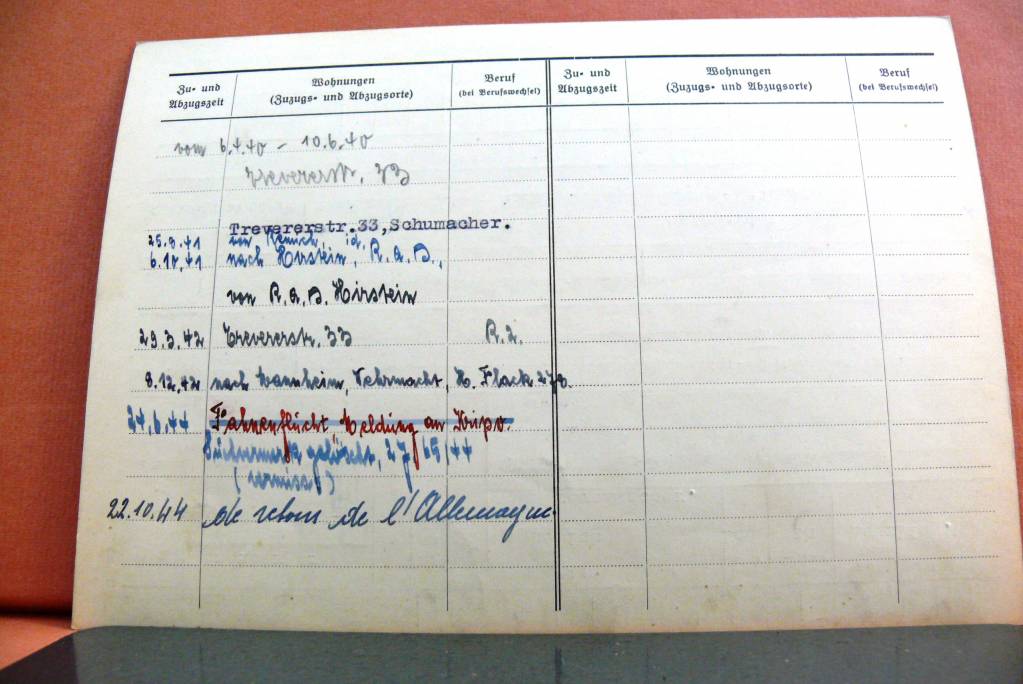 Zu- und Abzugszeit
Wohnungen (Zuzugs- und Abzugsorte)
Beruf (bei Berufswechsel)
Zu- und Abzugszeit
Wohnungen (Zuzugs- und Abzugsorte)
Beruf (bei Berufswechsel)
vom 6.4.40 – 10.6.40
Trevererstr. 33
Trevererstr.33,Schumacher.
25.9.41 von Remich, id.
6.10.41 nach Hirstein, R.a.D.,
von R.a.D. Hirstein
29.3.42 Trevererstr. 33
8.12.42 nach Mannheim, Wehrmacht, H. Flack
27.6.44 Fahnenflucht, Meldung an Kripo.
Suchvermerk gelöscht, 2765/44
(vermisst)
22.10.44 de retour de l'Allemagne